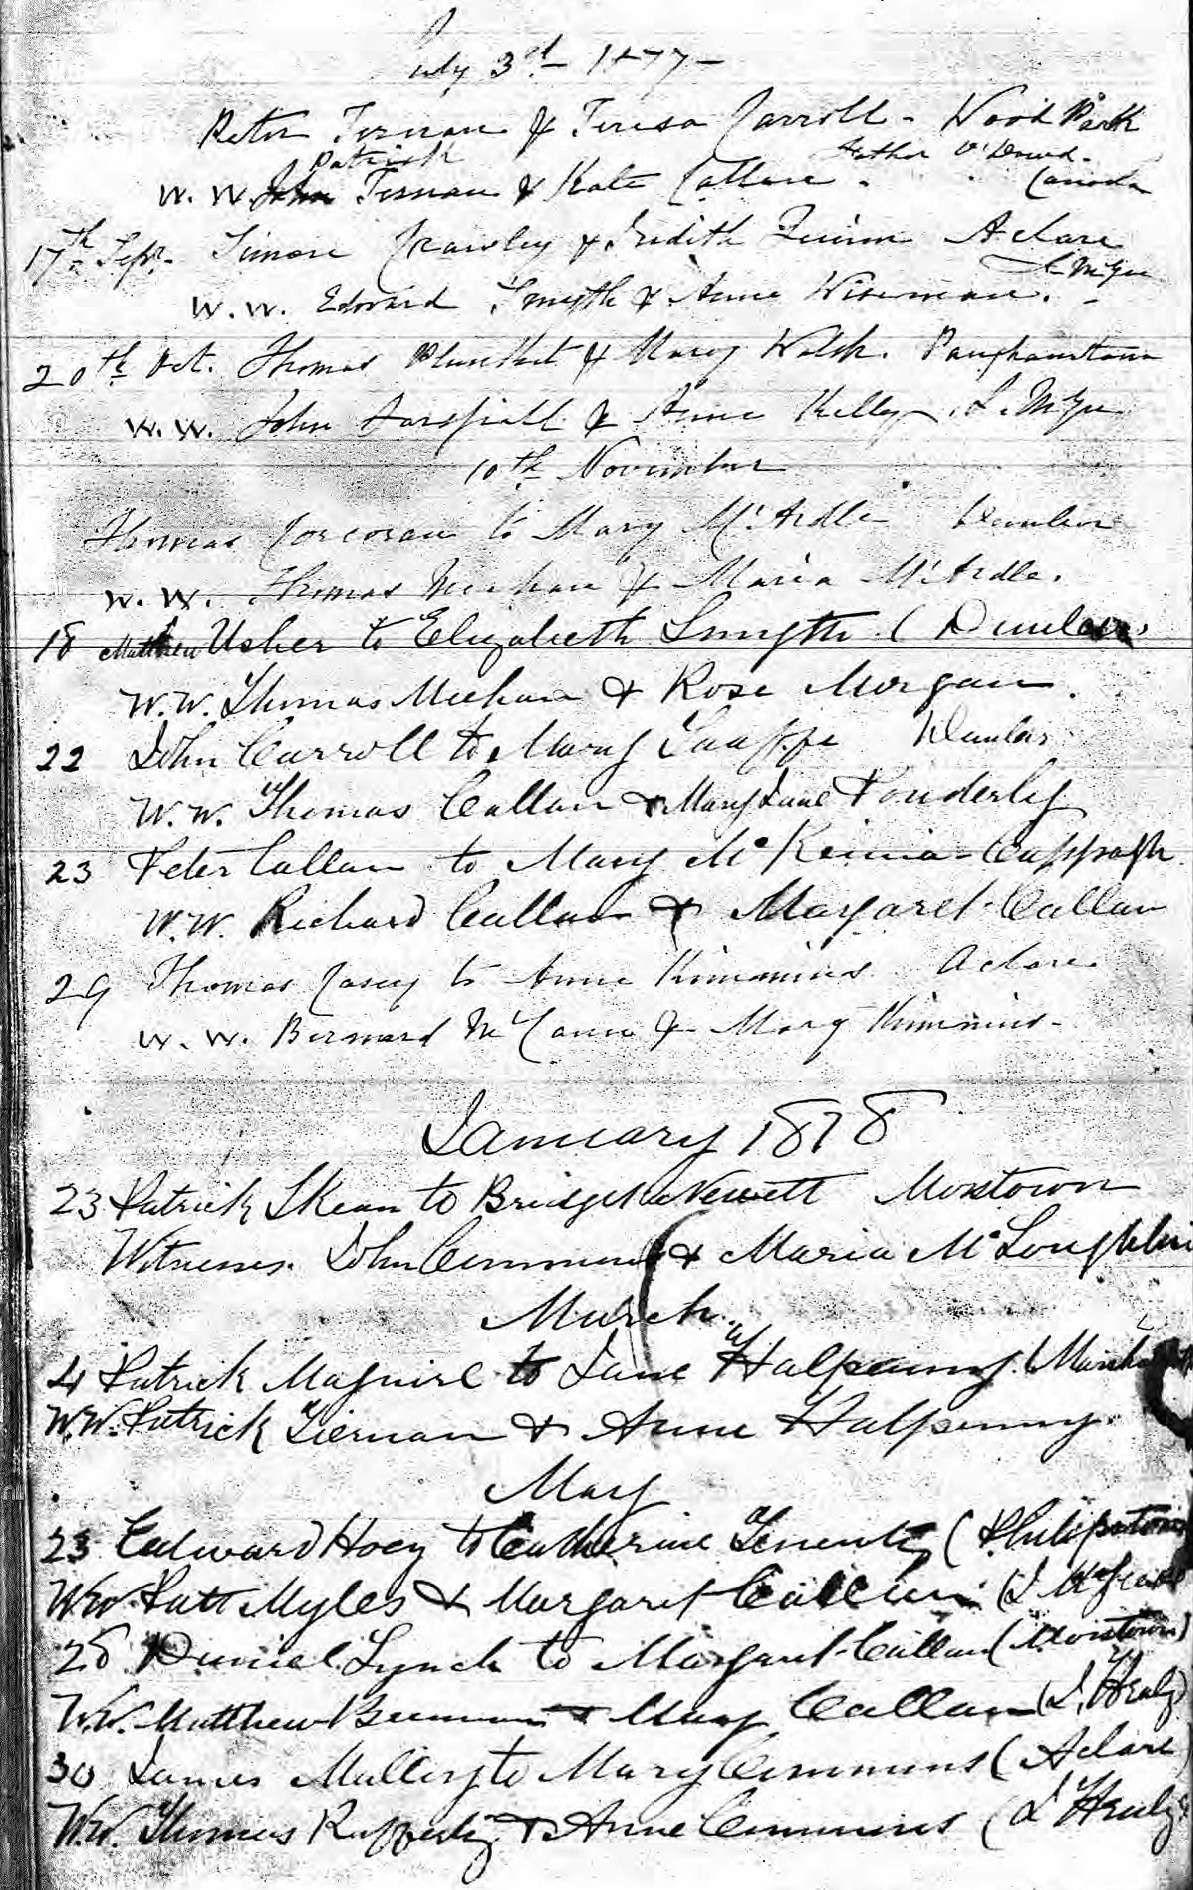 July 3rd - 1877 -
Peter Ternan & Teresa Carroll - Wood Park
Patrick Father O'Dowd -
W. W. John Ternan & Kate Callan - Canada
17th Sept. Simon Crawley & Judith Quinn Aclare
W. W. Edward Smyth & Anne Wiseman. - McGee
20th Oct. Thomas Plunket & Mary Walsh.
W. W. John & Anne Kelly - L. McGee
10th November
Thomas Corcoran to Mary McArdle
W. W. Thomas Meehan & Maria McArdle.
18 Matthew Usher to Elizabeth Smyth (
W. W. Thomas Meehan & Rose Morgan.
22 John Carroll to Mary Taaffe
W. W. Thomas Callan & Mary Jane Ponderly
23 Peter Callan to Mary McKenna - Cappagh
W. W. Richard Callan & Margaret Callan
29 Thomas Casey to Anne Kimmins Aclare
W. W. Bernard McCann & Mary Kimmins -
January 1878
23 Patrick Skean to Bridget Nevett Mostown
Witnesses. John Commins & Maria McLoughlin
March
4 Patrick Maguire to Jane Halpenny (
W. W. Patrick Tiernan & Anne Halpenny.
May
23 Edward Hoey to Catherine Finenty (Philipstown
W W. Patt Myles & Margaret Callan (
28 Daniel Lynch to Margaret Callan (
W. W. Matthew & Mary Callan (J. Healy)
30 James Mallery to Mary Commins (Aclare)
W. W. Thomas Rafferty & Anne Commins (J Healy)